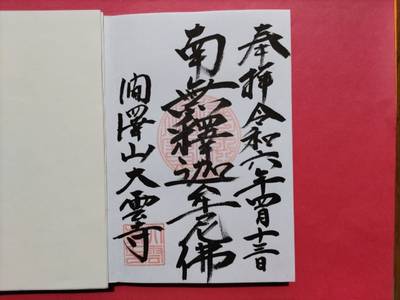 奉拝 令和六年四月十三日
南無釋迦牟尼佛
澤山大雲寺